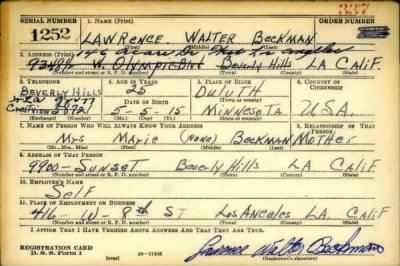 SERIAL NUMBER 1. NAME (Print) ORDER NUMBER
337
1252 LAWRENCE WALTER BECKMAN
(First) (Middle) (Last)
2. ADDRESS (Print)
W. OLYMPIC Blvd Beverly Hills LA CALIF.
(Number and street or R. F. D. number) (Town) (County) (State)
3. TELEPHONE 4. AGE IN YEARS 5. PLACE OF BIRTH 6. COUNTRY OF CITIZENSHIP
BEVERLY HILLS 25 DULUTH
DATE OF BIRTH (Town or county)
CRestview 5 - 5 - 15 MINNESOTA U.S.A.
(Exchange) (Number) (Mo.) (Day) (Yr.) (State or country)
7. NAME OF PERSON WHO WILL ALWAYS KNOW YOUR ADDRESS 8. RELATIONSHIP OF THAT PERSON
Mrs Marie (NONE) BECKMAN MOTHER
(Mr., Mrs., Miss) (First) (Middle) (Last)
9. ADDRESS OF THAT PERSON
9900 - SUNSET Beverly Hills LA CALIF
(Number and street or R. F. D. number) (Town) (County) (State)
10. EMPLOYER'S NAME
SELF
11. PLACE OF EMPLOYMENT OR BUSINESS
416 - W - 8th ST LOS ANGELES LA. CALIF
(Number and street or R. F. D. number) (Town) (County) (State)
I AFFIRM THAT I HAVE VERIFIED ABOVE ANSWERS AND THAT THEY ARE TRUE.
REGISTRATION CARD
D. S. S. Form 1 (over) Lawrence Walter Beckman
(Registrant's signature)